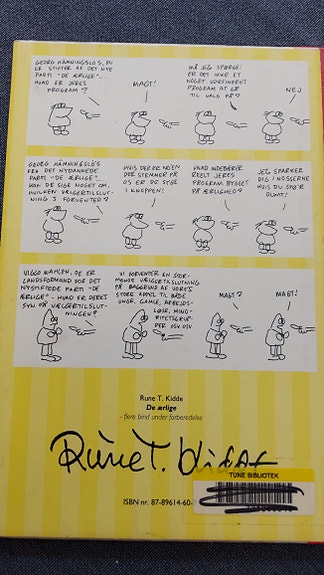 GEORG HÆMNINGSLØS, DU
ER STIFTER AF DET NYE
PARTI "DE ÆRLIGE"...
HVAD ER JERES
PROGRAM?
MAGT!
MÅ JEG SPØRGE:
ER DET IKKE ET
NOGET UDEFINERET
PROGRAM AT GÅ
TIL VALG PÅ?
NEJ
GEORG HÆMNINGSLØS
FRA DET NYDANNEDE
PARTI "DE ÆRLIGE"
KAN DE SIGE NOGET OM,
HVILKEN VÆLGERTILSLUT-
NING I FORVENTER?
HVIS DER ER NO'EN
DER STEMMER PÅ
OS ER DE SYGE
I KNOPPEN!
HVAD INDEBÆRER
REELT JERES
PROGRAM BYGGET
PÅ ÆRLIGHED?
JEG SPARKER
DIG I NOSSERNE
HVIS DU SPØ'R
DUMT!
VIGGO KAHLEN, DE ER
LANDSFORMAND FOR DET
NYSTIFTEDE PARTI "DE
ÆRLIGE" - HVAD ER DERES
SYN PÅ VÆLGERTILSLUT-
NINGEN?
VI FORVENTER EN STOR-
MENDE VÆLGERTILSLUTNING
PÅ BAGGRUND AF VORES
STORE APPEL TIL BÅDE
UNGE, GAMLE, ARBEJDS-
LØSE, MINO-
RITETSGRUP-
PER OSV OSV
MAGT?
MAGT!
Rune T. Kidde
De ærlige
- flere bind under forberedelse
Rune T. Kidde
TUNE BIBLIOTEK
ISBN nr. 87-89614-60-